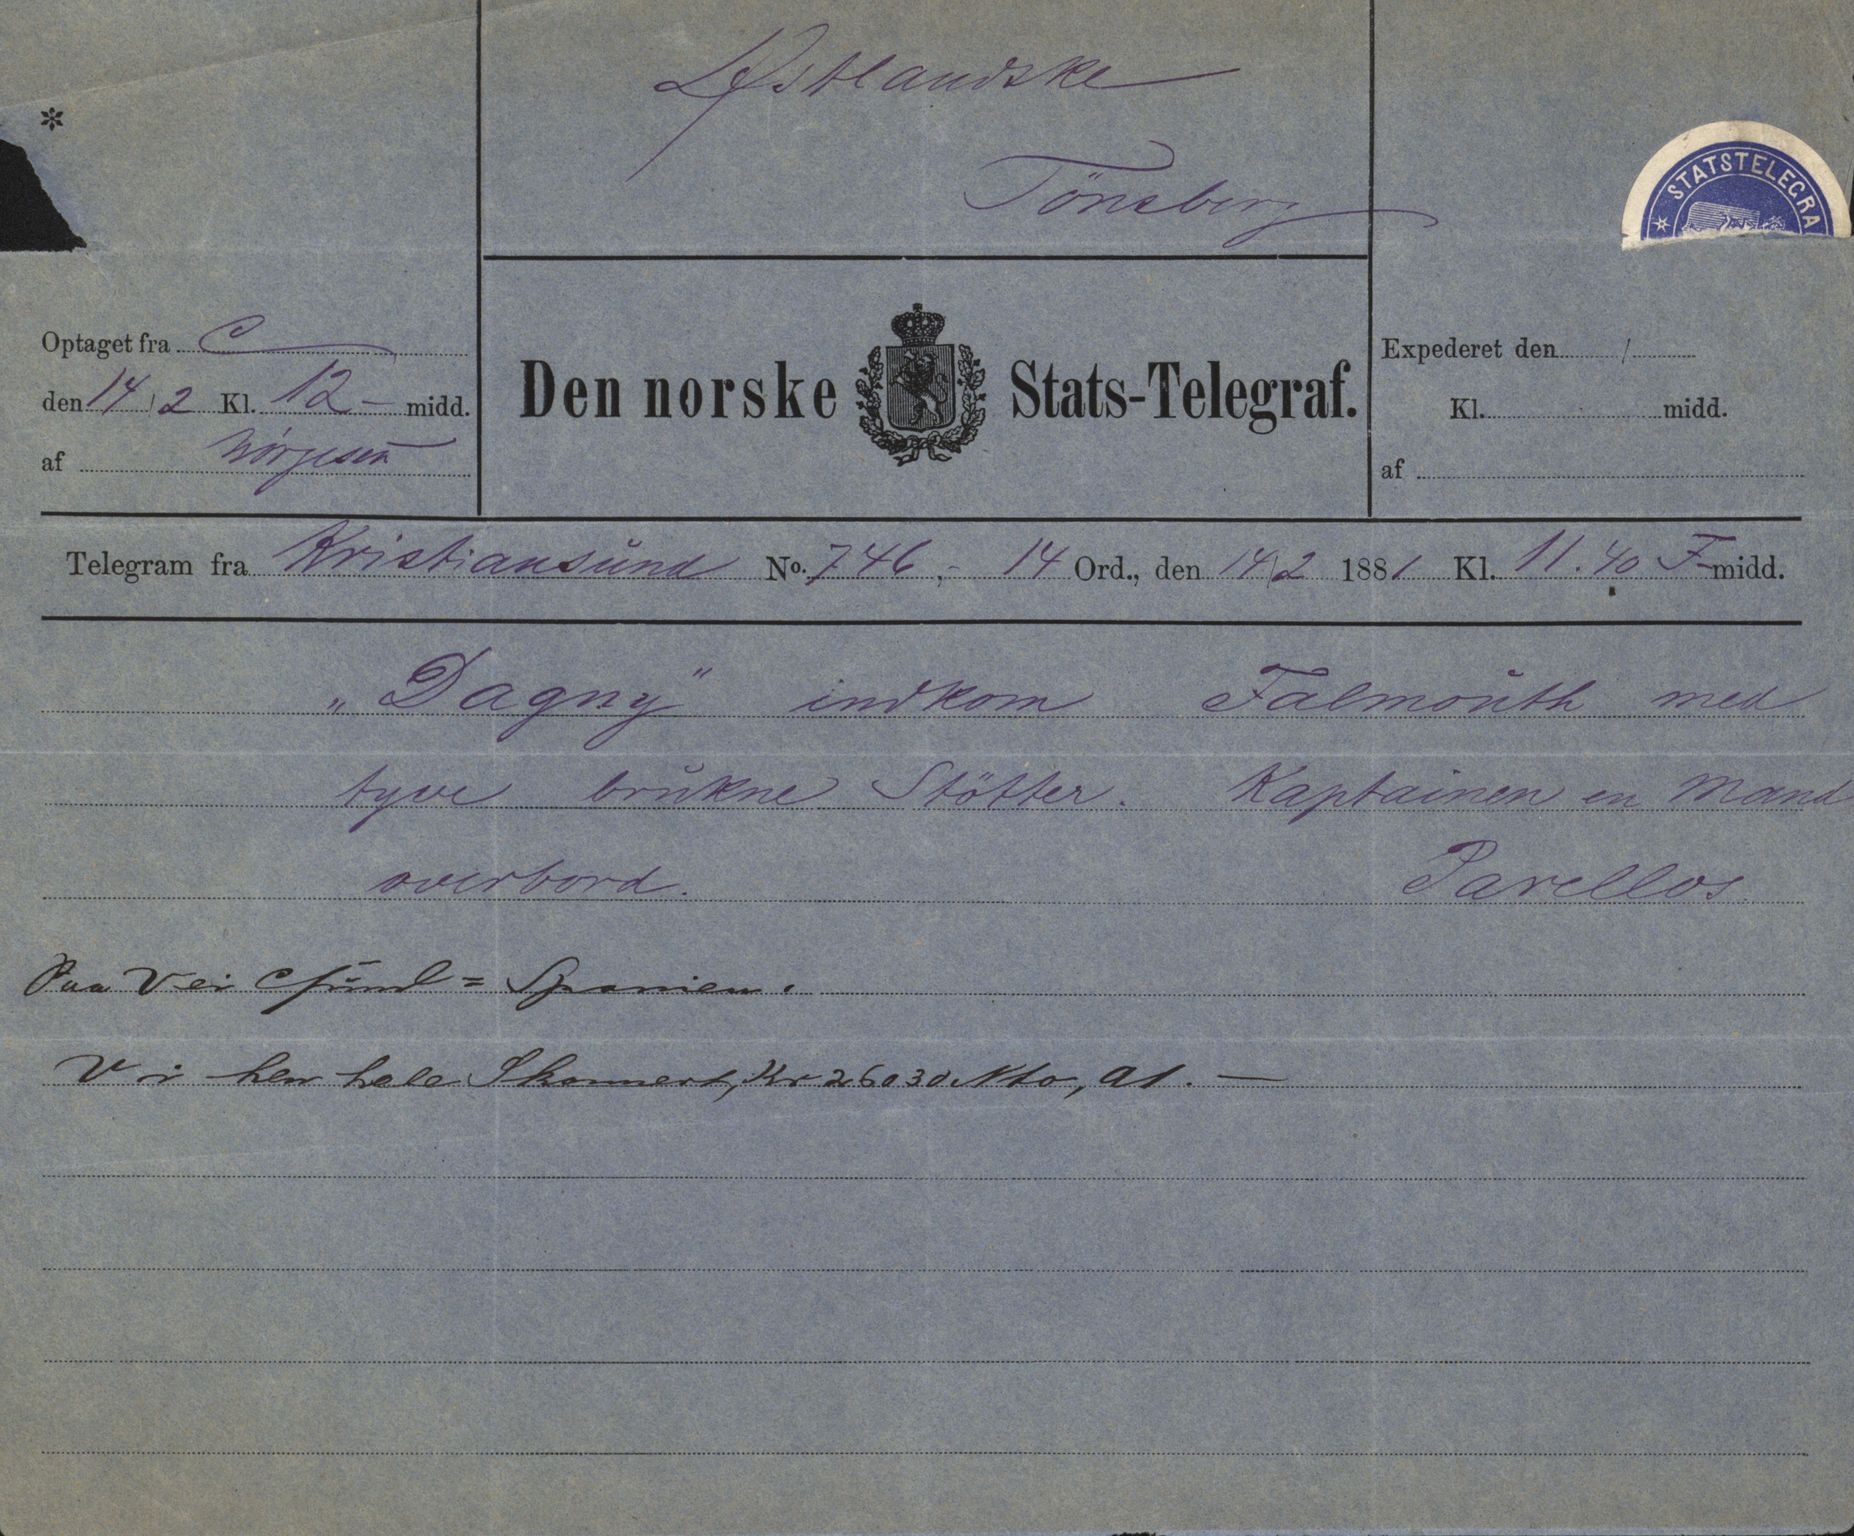 Østlandske
Tönsberg
*
STATSTELEGRA
Optaget fra C
den 14/2 Kl. 12 - midd.
af Jörgesen
Den norske Stats-Telegraf.
Expederet den /
Kl. midd.
af
Telegram fra Kristiansund No. 746, - 14 Ord., den 14/2 1881 Kl. 11.40 F midd.
„Dagny" indkom Falmouth med
tyve brukne Stötter. Kaptainen en Mand
overbord. Parellos
Paa Vei Csund = Spanien.
Vi her hele Skonnert, Kr 26030 Nto, A1. —